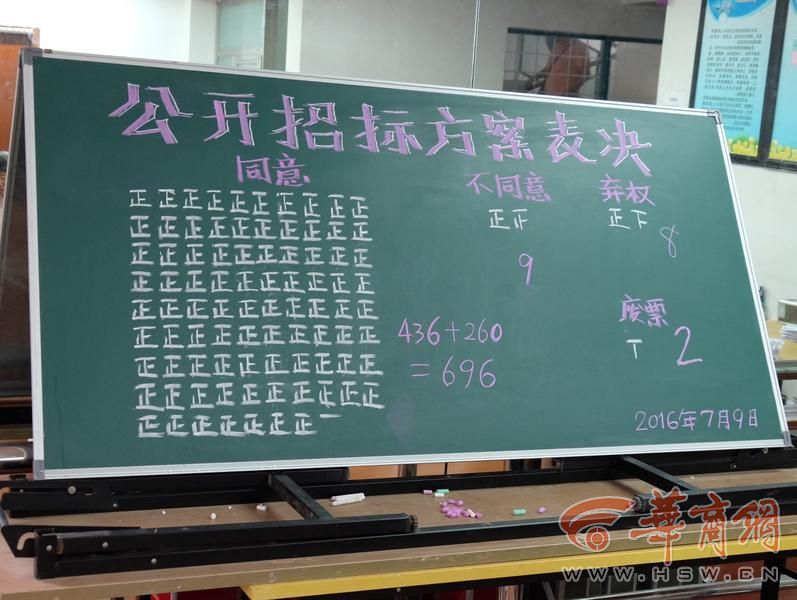 公开招标方案表决
同意
不同意
弃权
正正正正正正正正正正
正正正正正正正正正正
正正正正正正正正正正
正正正正正正正正正正
正正正正正正正正正正
正正正正正正正正正正
正正正正正正正正正正
正正正正正正正正正正
正正正正正正正一
436+260
=696
正正
9
正下
8
废票
丅
2
2016年7月9日
華商網
WWW.HSW.CN